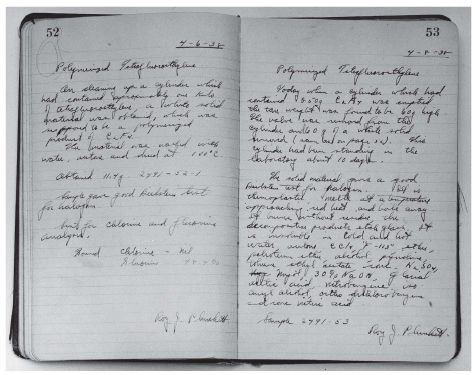 52
4-6-38
Polymerized Tetrafluoroethylene
On cleaning up a cylinder which
had contained approximately one kilo
of tetrafluoroethylene, a white solid
material was obtained, which was
supposed to be a polymerized
product of C2F4.
The material was washed with
water, and dried at 100°C
Obtained 11.4g. 2491-52-1
Sample gave good Beilstein test
for halogen.
for chlorine and fluorine
analysis.
Found chlorine - nil
fluorine
Roy J. Plunkett
53
4-8-38
Polymerized Tetrafluoroethylene
Today when a cylinder which had
contained C2F4 was emptied
the tare weight was found to be 60g high
The valve was removed from the
cylinder and 60g of a white solid
removed. This
cylinder had been standing in the
laboratory about 10 days.
The solid material gave a good
Beilstein test for halogen. It is
thermoplastic, melts at a temperature
approaching red heat and boils away
It burns without residue, the
decomposition products etch glass. It
is insoluble in cold and hot
water, acetone, ether,
petroleum ether, alcohol, pyridine,
ethyl acetate
30% NaOH, glacial
acetic acid, nitrobenzene,
amyl alcohol, ortho dichlorobenzene
nitric acid
Sample 2491-53
Roy J. Plunkett